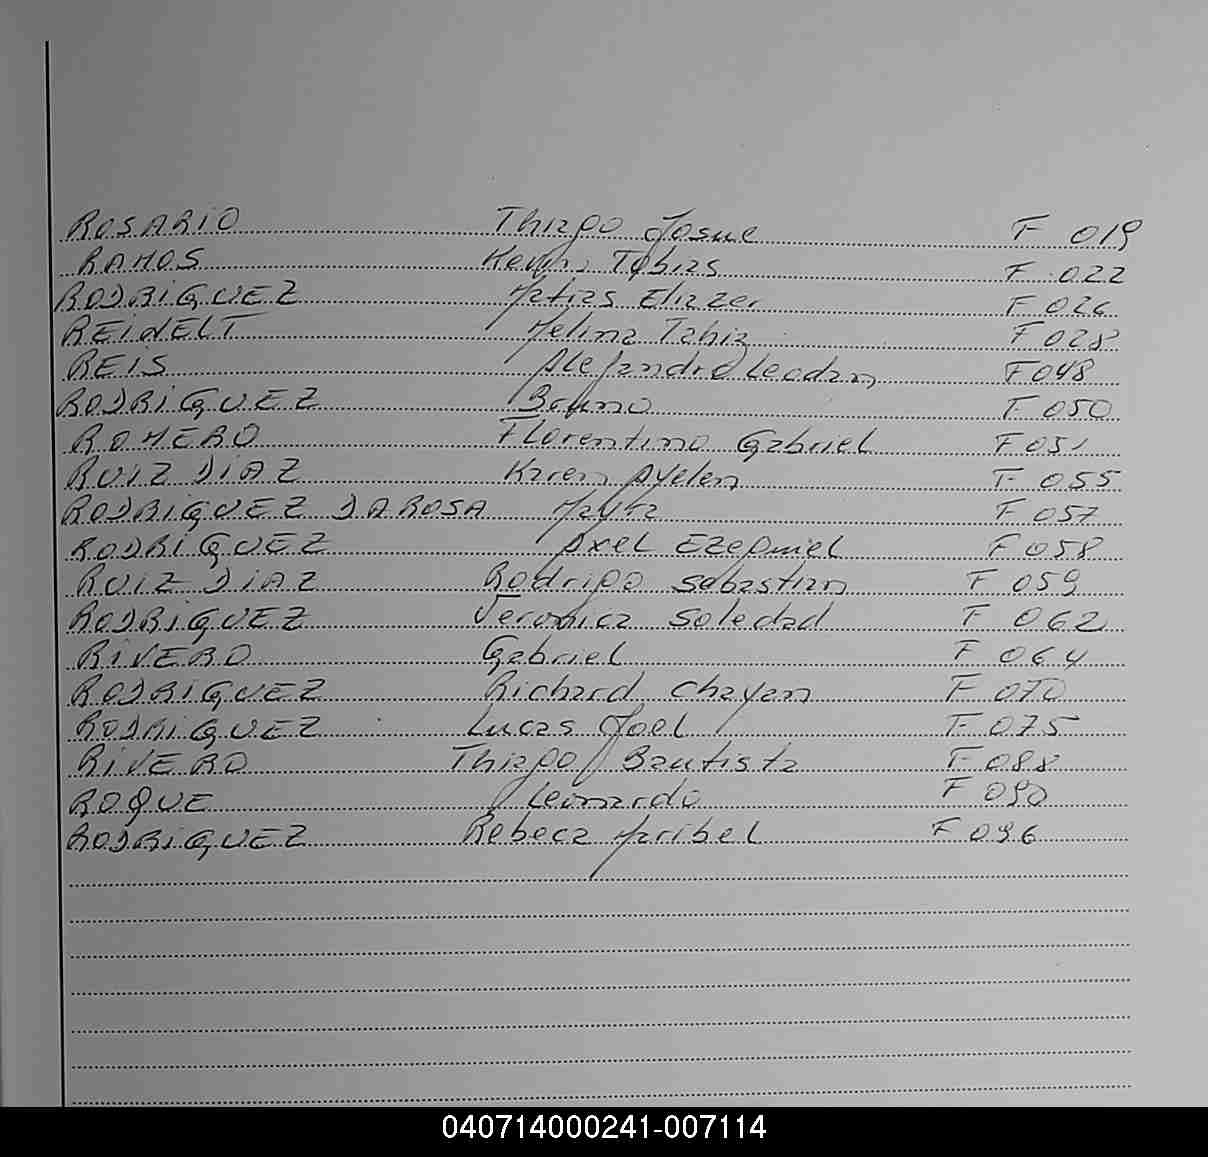 ROSARIO Thiago Josue F 019
RAMOS Kevin Tobias F 022
RODRIGUEZ Matias Eliazer F 026
REINELT Melina Tahiz F 028
REIS Alejandro Leodan F 048
RODRIGUEZ Bruno F 050
ROMERO Florentino Gabriel F 051
RUIZ DIAZ Karen Ayelen F 055
RODRIGUEZ DA ROSA Mayra F 057
RODRIGUEZ Axel Ezequiel F 058
RUIZ DIAZ Rodrigo Sebastian F 059
RODRIGUEZ Veronica Soledad F 062
RIVERO Gabriel F 064
RODRIGUEZ Richard Chayan F 070
RODRIGUEZ Lucas Joel F 075
RIVERO Thiago Bautista F 088
ROQUE Leonardo F 090
RODRIGUEZ Rebeca Maribel F 096
040714000241-007114